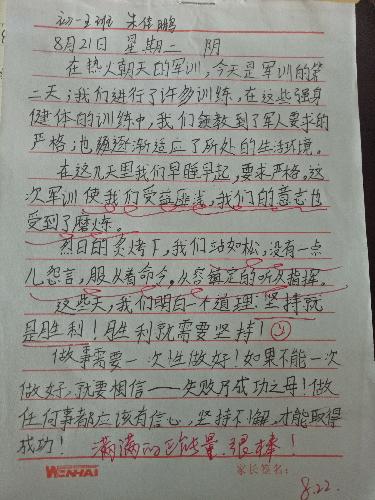 初一5班 朱佳鹏
8月21日 星期二 阴
在热火朝天的军训,今天是军训的第
二天;我们进行了许多训练,在这些强身
健体的训练中,我们领教到了军人要求的
严格;也逐渐适应了所处的生活环境。
在这几天里我们早睡早起,要求严格。这
次军训使我们受益匪浅,我们的意志也
受到了磨炼。
烈日的炙烤下,我们站如松,没有一点
儿怨言,服从着命令。从容镇定的听从指挥。
这些天,我们明白一个道理:坚持就
是胜利!胜利就需要坚持!
做事需要一次性做好!如果不能一次
做好,就要相信——失败乃成功之母!做
任何事都应该有信心,坚持不懈,才能取得
成功! 满满的正能量,很棒!
WENHAI 家长签名:
8.22.